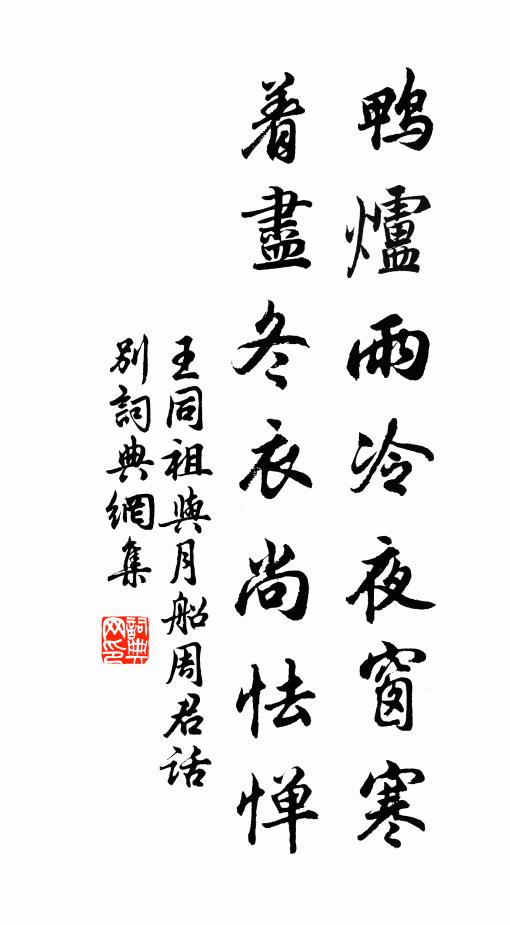 鸭爐雨冷夜窗寒
着盡冬衣尚怯惮
王同祖與月船周君話
别詞典網集
詞典网印